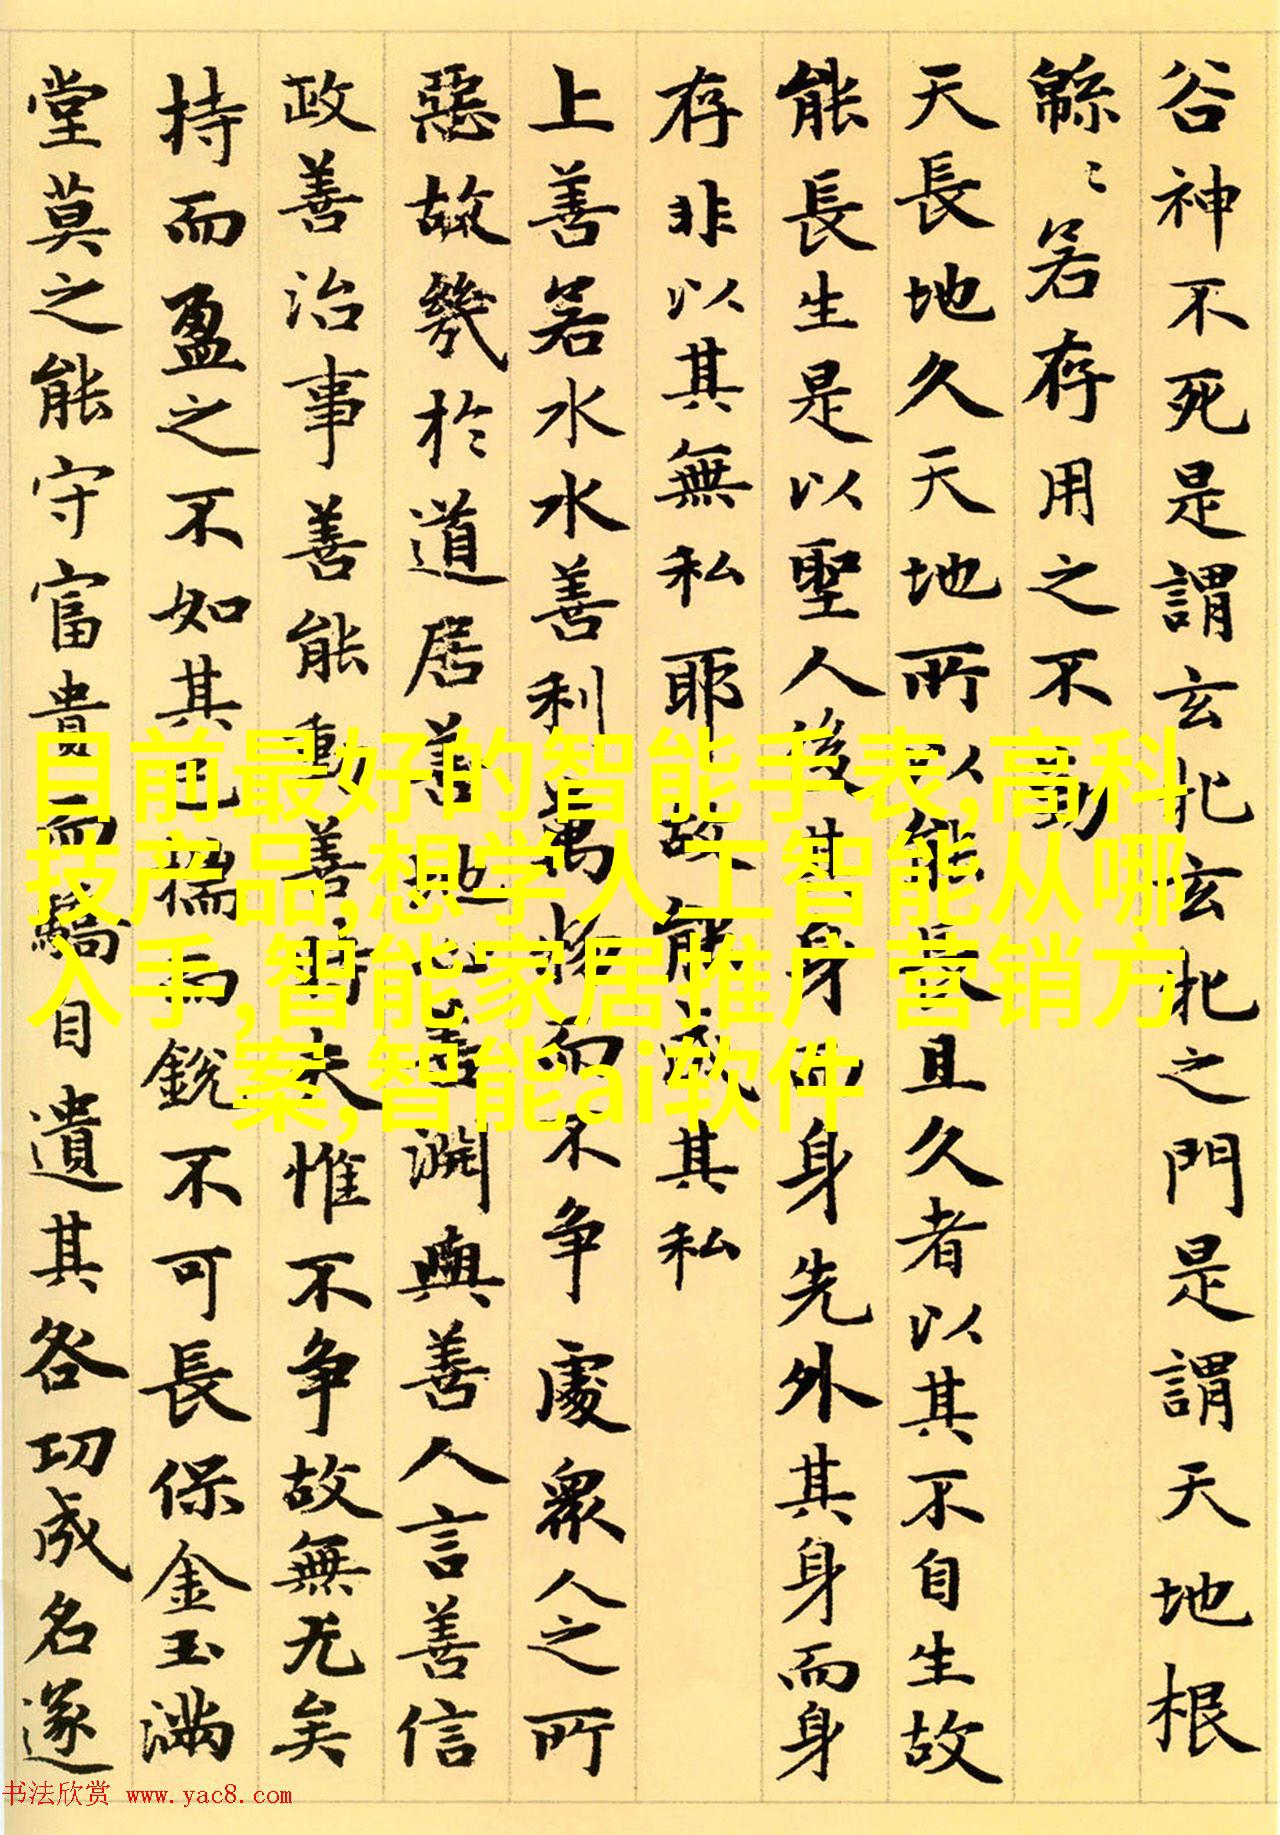 谷神不死是謂玄牝玄牝之門是謂天地根
緜〻若存用之不勤
天長地久天地所以能長且久者以其不自生故
能長生是以聖人後其身而身先外其身而身
存非以其無私耶故能成其私
上善若水水善利萬物而不争處衆人之所
惡故幾於道居善地心善淵與善人言善信
政善治事善能動善時夫惟不争故無尤矣
持而盈之不如其已揣而銳不可長保金玉滿
堂莫之能守富貴而驕自遺其咎功成名遂
目前最好的智能手表,高科
技产品,想学人工智能从哪
入手,智能家居推广营销方
案,智能ai软件
书法欣赏 www.yac8.com